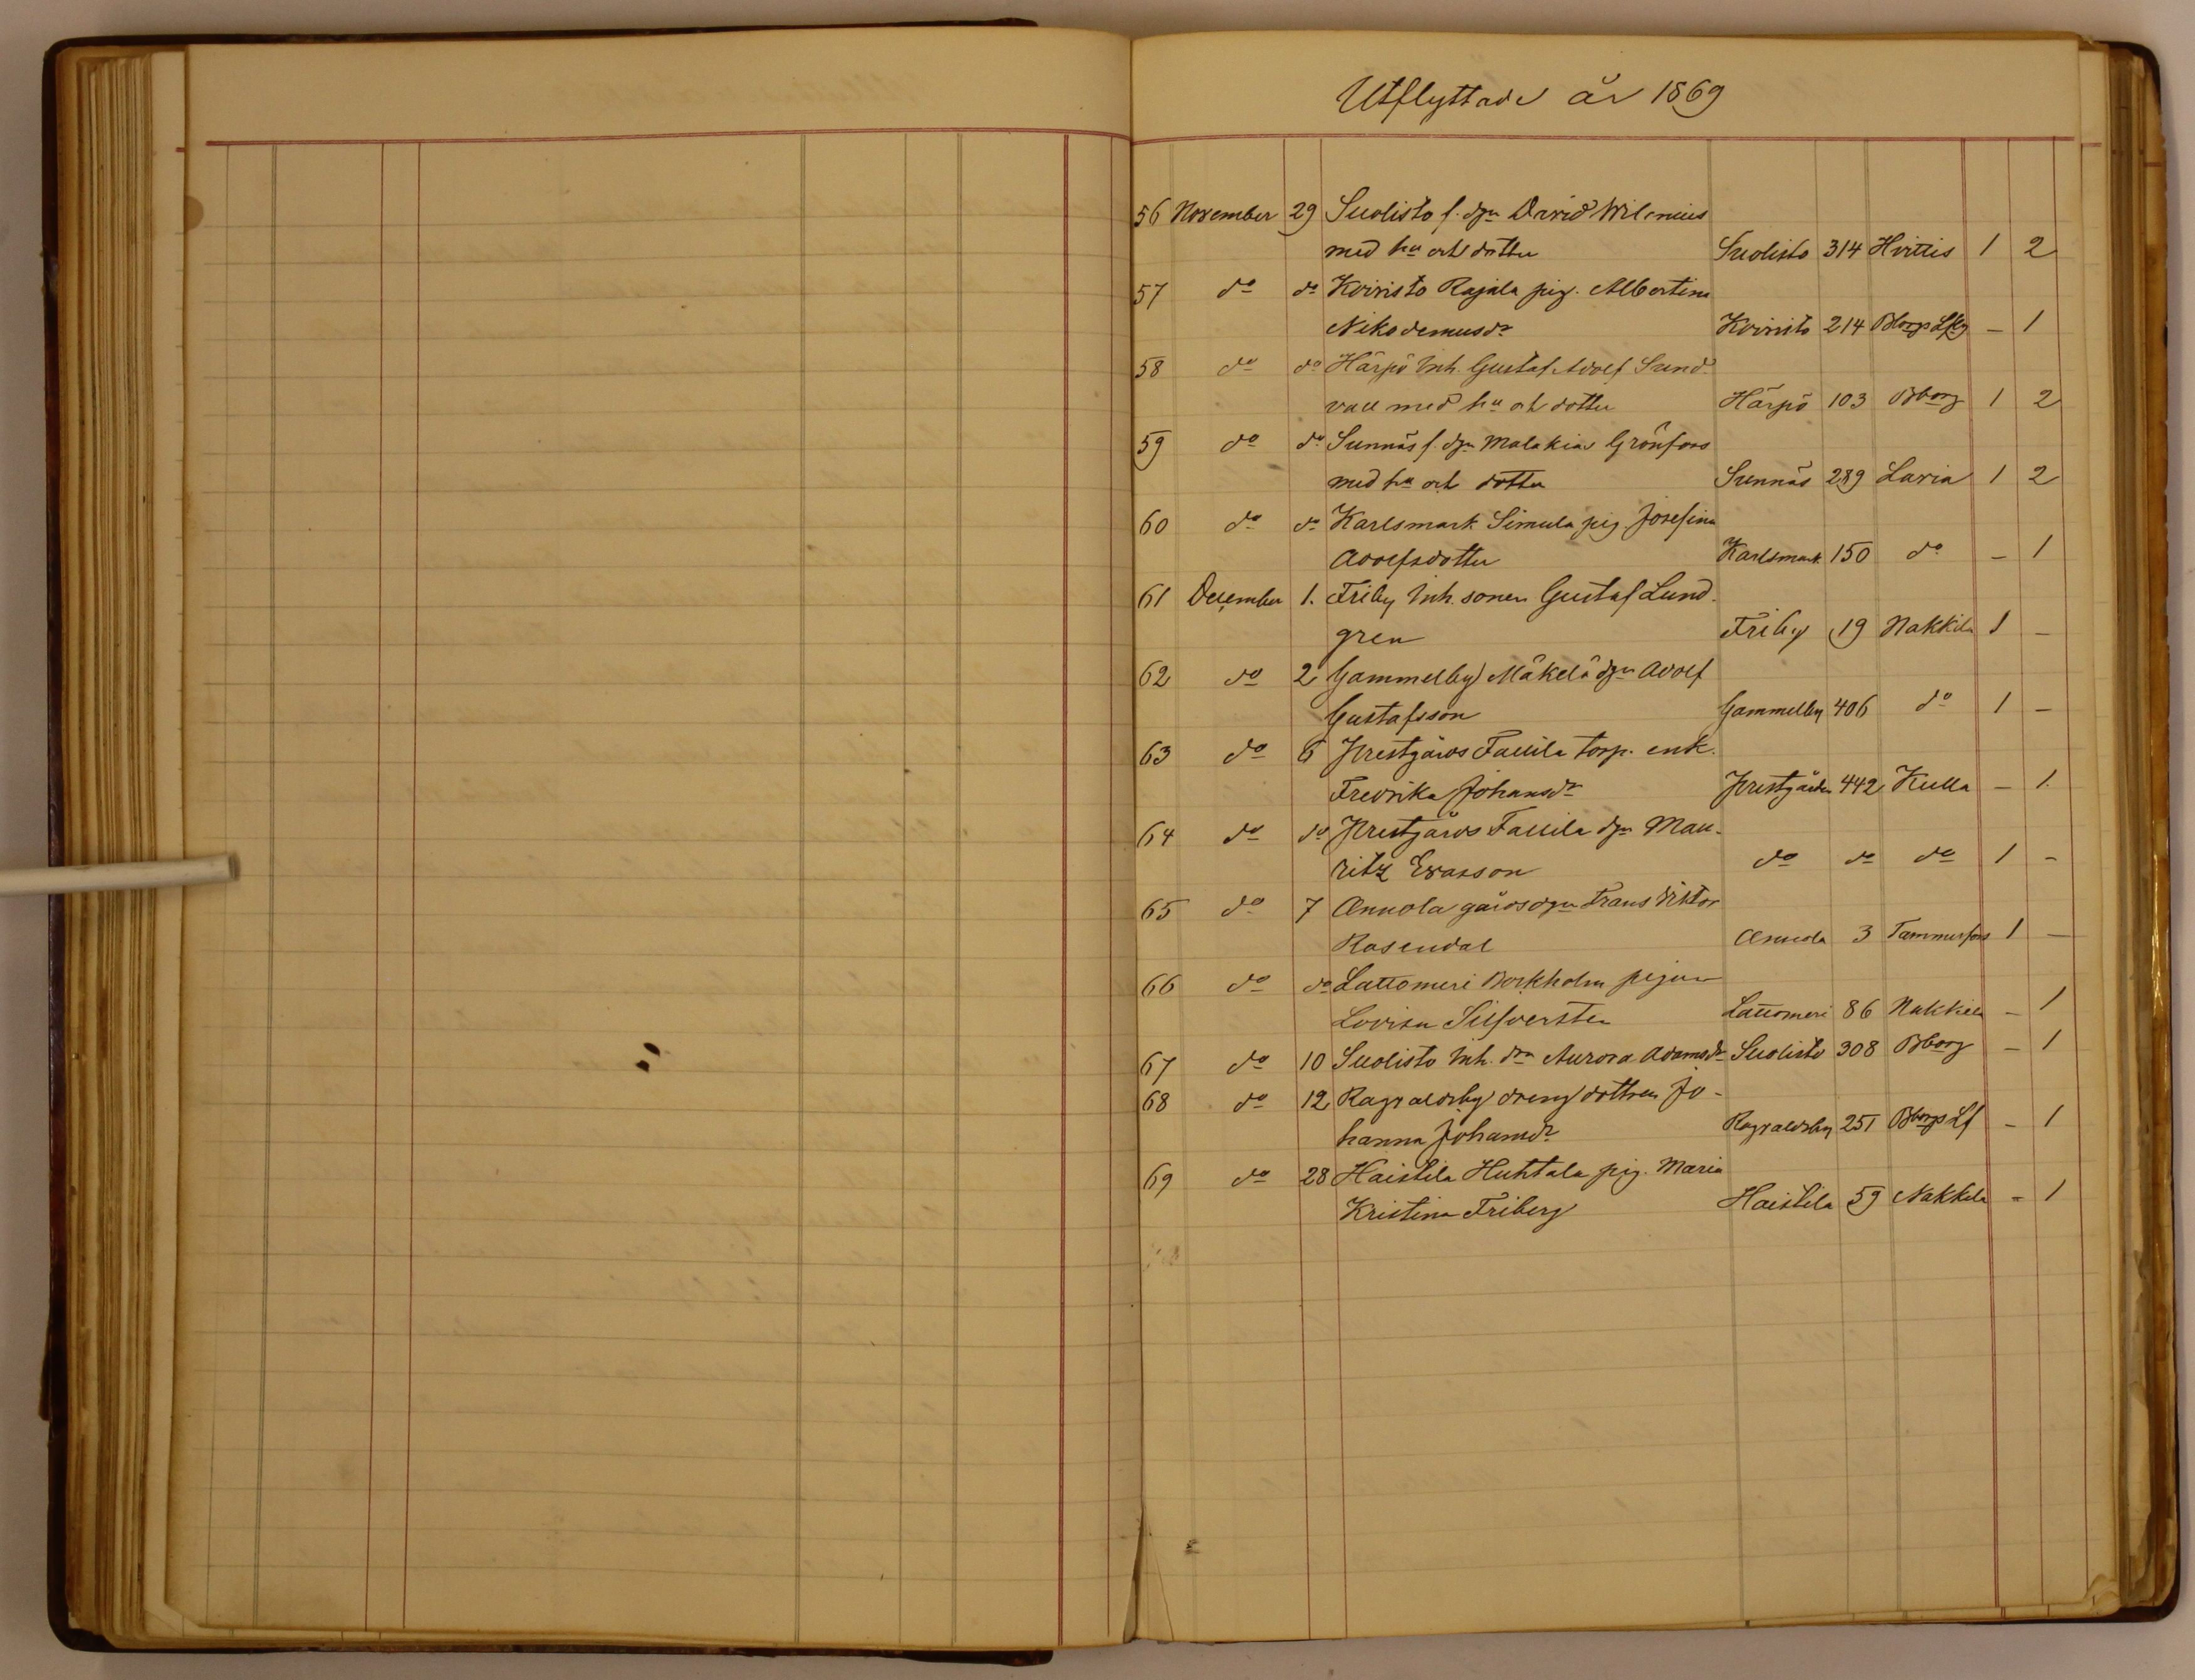 Utflyttade år 1869
56 November 29 Suolisto f. dgn David Wilenius
med hu och dotter Suolisto 314 Hvittis 1 2
57 do do Koivisto Rajala pig. Albertina
Nikodemusdr Koivisto 214 Bborgs Lfkg – 1
58 do do Härpö Inh. Gustaf Adolf Sund-
vall med hu och dotter Härpö 103 Bborg 1 2
59 do do Sunnäs f. dgn Malakias Grönfors
med hu och dotter Sunnäs 289 Lavia 1 2
60 do do Karlsmark Simula pig. Josefina
Adolfsdotter Karlsmark 150 do – 1
61 December 1. Friby Inh. sonen Gustaf Lund-
gren Friby 19 Nakkila 1 –
62 do 2 Gammelby Mäkelä dgn Adolf
Gustafsson Gammelby 406 do 1 –
63 do 6 Prestgårds Fallila torp. enk.
Fredrika Johansdr Prestgården 442 Kulla – 1.
64 do do Prestgårds Fallila dgn Mau-
ritz Evasson do do do 1 –
65 do 7 Annola gårdsdgn Frans Viktor
Rosendal Annola 3 Tammerfors 1 –
66 do do Lattomeri Borkholm pigan
Lovisa Silfversten Lattomeri 86 Nakkila – 1
67 do 10 Suolisto Inh. drn Aurora Adamsdr Suolisto 308 Bborg – 1
68 do 12 Ragvaldsby dreng dottren Jo-
hanna Johansdr Ragvaldsby 251 Bborgs Lf – 1
69 do 28 Haistila Huhtala pig. Maria
Kristina Friberg Haistila 59 Nakkila – 1